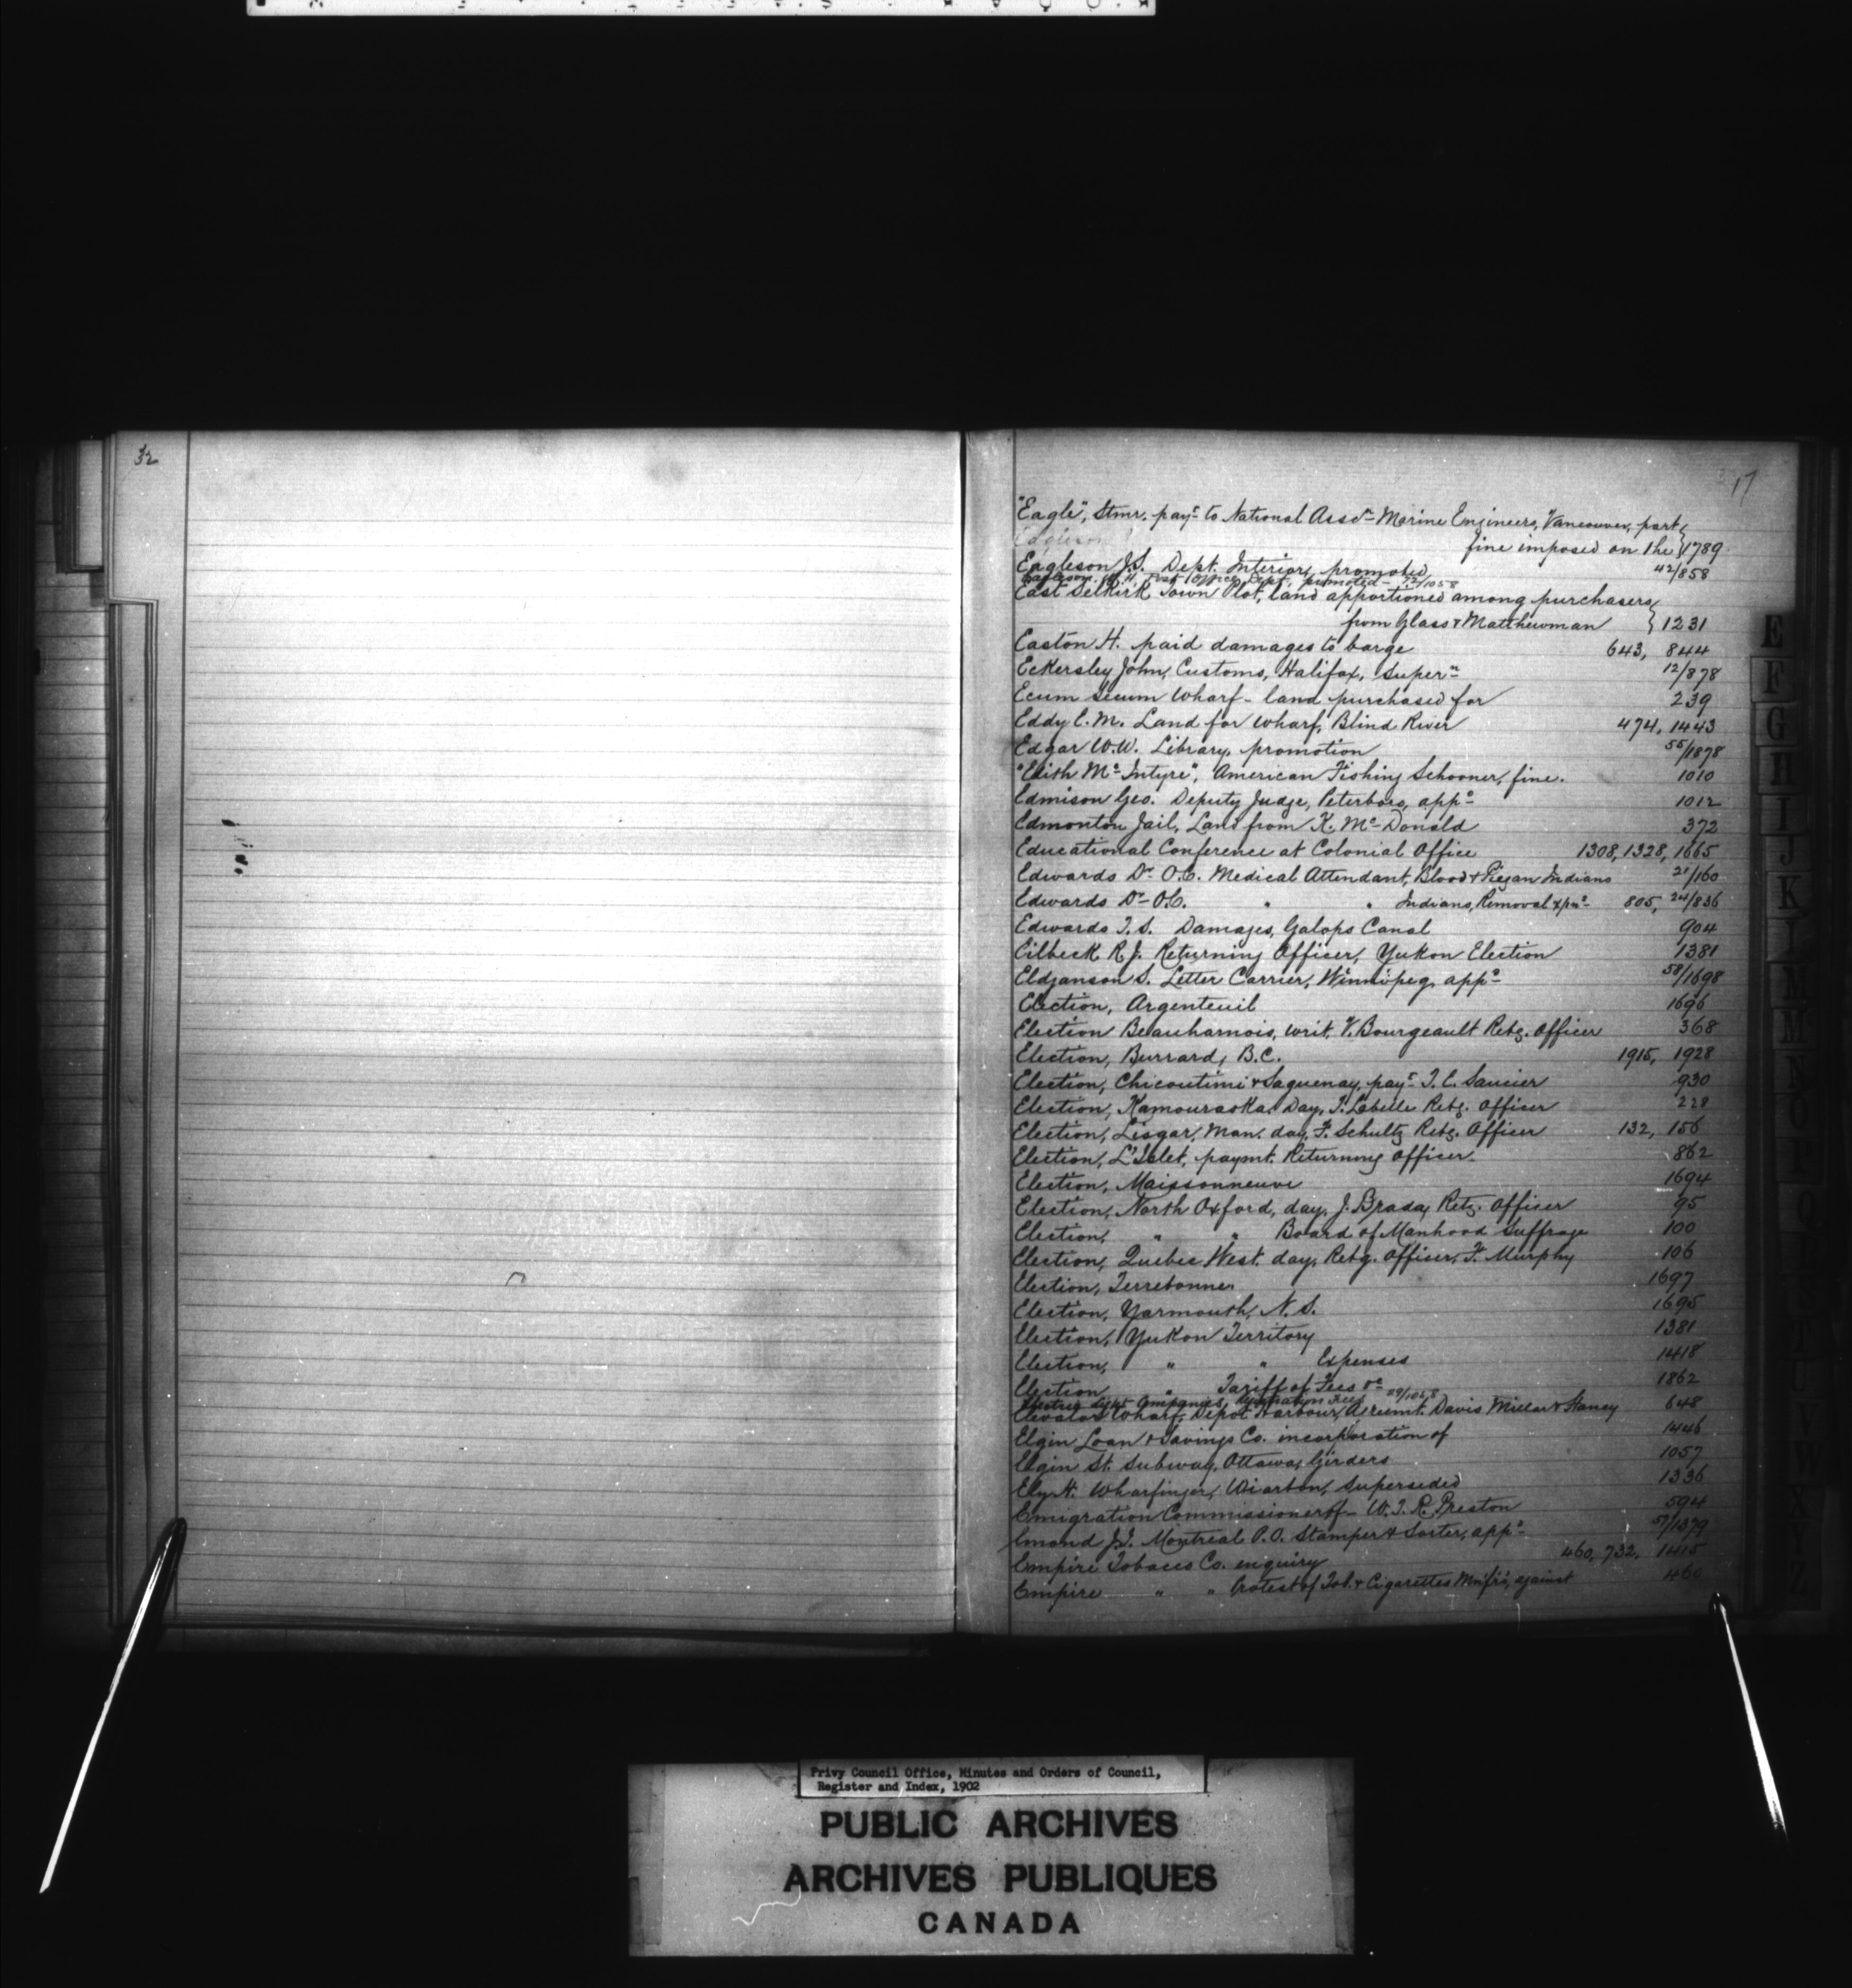 32
17
"Eagle", Stmr. payt to National Assdn Marine Engineers, Vancouver, part
fine imposed on the } 1789
Eagleson
Eagleson J.S. Dept. Interior, promoted 42/858
Eagleson, Post Office Dept., promoted - 22/1058
East Selkirk Town Plot, land apportioned among purchasers
from Glass & Matthewman } 1231
Easton H. paid damages to barge 643, 844
Eckersley John, Customs, Halifax, Supern 12/878
Ecum Secum Wharf - land purchased for 239
Eddy E.M. Land for Wharf, Blind River 474, 1443
Edgar W.W. Library, promotion 55/1878
"Edith Mc Intyre", American Fishing Schooner, fine. 1010
Edmison Geo. Deputy Judge, Peterboro, appd 1012
Edmonton Jail, Land from K. Mc Donald 372
Educational Conference at Colonial Office 1308, 1328, 1665
Edwards Dr O.C. Medical Attendant, Blood & Piegan Indians 21/160
Edwards Dr O.C. " " Indians, Removal 805, 24/836
Edwards T.S. Damages, Galops Canal 904
Eilbeck R.J. Returning Officer, Yukon Election 1381
Eldjanson S. Letter Carrier, Winnipeg, appd 58/1698
Election, Argenteuil 1696
Election Beauharnois, writ, V. Bourgeault Retg. Officer 368
Election, Burrard, B.C. 1915, 1928
Election, Chicoutimi & Saguenay, payt J.E. Saucier 930
Election, Kamouraska. Day, T. Labelle Retg. Officer 228
Election, Lisgar, Man. day, F. Schultz Retg. Officer 132, 156
Election, L'Islet, paymt. Returning Officer 862
Election, Maissonneuve 1694
Election, North Oxford, day, J. Brady Retg. Officer 95
Election, " " Board of Manhood Suffrage 100
Election, Quebec West. day, Retg. Officer, F. Murphy 106
Election, Terrebonne 1697
Election, Yarmouth, N.S. 1695
Election, Yukon Territory 1381
Election, " " Expenses 1418
Election " Tariff of Fees &c 1862
Electric Light Companies, Fees 29/1068
Elevator Wharf, Depot Harbour, Agreemt. Davis Millar & Staney 648
Elgin Loan & Savings Co. incorporation of 1446
Elgin St. Subway, Ottawa, Girders 1057
Ely H. Wharfinger, Wiarton, superseded 1336
Emigration Commissioner of - W.T.R. Preston 594
Emond J.T. Montreal P.O. Stamper & Sorter, appd 57/1379
Empire Tobacco Co. enquiry 460, 732, 1415
Empire " " Protest of Tob. & Cigarettes Mnfrs, against 460
E
F
G
H
I
J
K
L
M
N
Privy Council Office, Minutes and Orders of Council,
Register and Index, 1902
PUBLIC ARCHIVES
ARCHIVES PUBLIQUES
CANADA